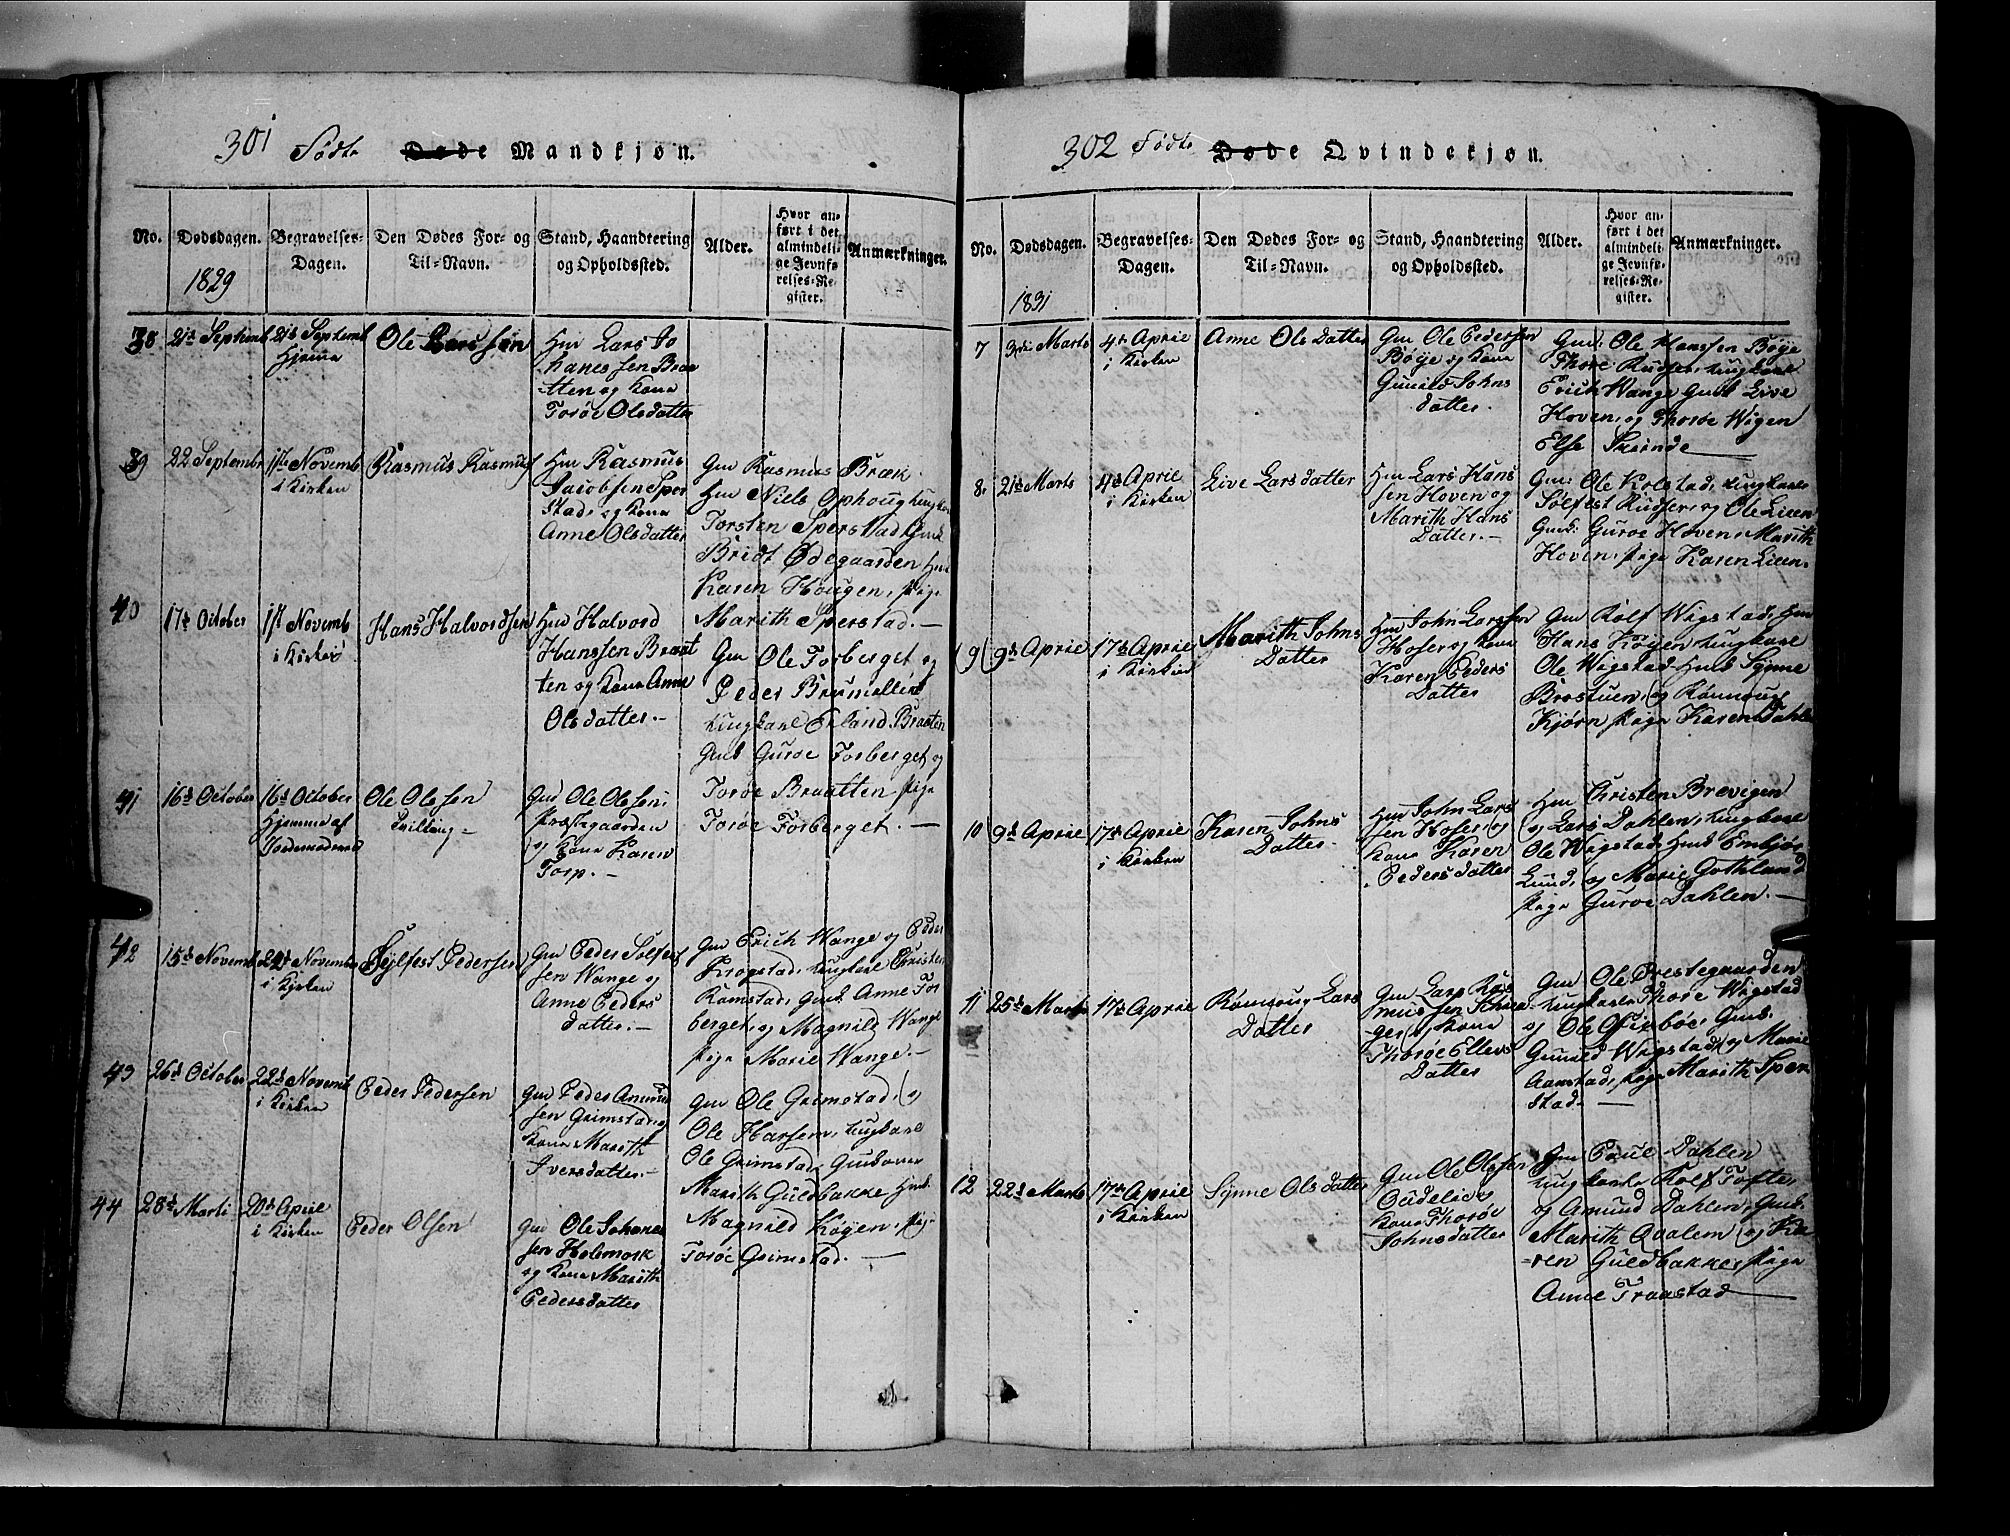 301 Födte Døde Mandkjøn.
No.
Dødsdagen.
1829
Begravelses-
Dagen.
Den Dødes For- og
Til-Navn.
Stand, Haandtering
og Opholdssted.
Alder.
Hvor an-
ført i det
almindeli-
ge Jevnfø-
relses-Re-
gister.
Anmærkninger.
38
21d Septemb
21d Septemb
Hjemme
Ole Larssen
Hm Lars Jo
hanessen Braa
-ten og Kone
Torøe Olsdatter
39
22 Septembr
1ste Novemb
i Kirken
Rasmus Rasmus
Hm Rasmus
Jacobsen Sper
stad, og Kone
Anne Olsdatter
Gm Rasmus Bræk
Hm Niels Ophoug Ungkar
Torsten Sperstad Gmk
Bridt Ødegaarden Hmk
Karen Hougen, Pige
Marith Sperstad. —
40
17d October
1st Novemb
i Kirken
Hans Halvordsen
Hm Halvord
Hanssen Braat
ten og Kone Anne
Olsdatter. —
Gm Ole Forberget og
Peder Brumellien
Ungkarl Erland Braaten
Gmk Guroe Forberget og
Torøe Braatten Pige
Torøe Forberget. —
41
16d October
16d October
Hjemme af
Jordemoderen
Ole Olesen
Tvilling —
Gm Ole Olesen
Præstegaarden
og Kone Karen
Torp. —
42
15d Novemb
22d Novemb
i Kirken
Sylfest Pedersen
Gm Peder Solfest
sen Wange og
Anne Peders
datter. —
Gm Erich Wange og Peder
Krogstad, Ungkarl Christen
Ramstad, Gmk Anne For
berget, og Magnild Wange
Pige Marie Wange. —
43
26d October
22d Novemb
i Kirken
Peder Pedersen
Gm Peder Amund
sen Grimstad, og
Kone Marith
Iversdatter. —
Gm Ole Grimstad, og
Ole Harsem, Ungkarl
Ole Grimstad, Gmk
Marith Guldbakke Hmk
Magnild Køyen, Pig
Torøe Grimstad. —
44
28d Marti
20d April
i Kirken
Peder Olsen
Gm Ole Johane
sen Holemork
og Kone Marith
Pedersdatter
302 Födte Døde Qvindekjøn.
No.
Dødsdagen.
1831
Begravelses-
Dagen.
Den Dødes For- og
Til-Navn.
Stand, Haandtering
og Opholdssted.
Alder.
Hvor an-
ført i det
almindeli-
ge Jevnfø-
relses-Re-
gister.
Anmærkninger.
7
3die Marts
4d Aprie
i Kirken
Anne Olsdatter
Gm Ole Pedersen
Bøye og Kone
Gunild Johns
datter.
Gm: Ole Hanssen Bøye
Thore Rudser, Ungkarl
Erich Wange Gmk Live
Hoven, og Thoroe Wigen
Else Skrinde
8.
21d Marts
4d Aprie
i Kirken
Live Larsdatter
Hm Lars Hans
sen Hoven og
Marith Hans
Datter. —
Gm: Ole Kolstad, Ungkarl
Solfest Rudser, og Ole Lieen
Gmk: Guroe Hoven, Marith
Hoven, Pige Karen Lieen.
9
9d Aprie
17d Aprie
i Kirken
Marith Johns
Datter
Hm John Larssen
Hoser, og Kone
Karen Peders
Datter
Gm Rolf Wigstad, Hm
Hans Køyen Ungkarl
Ole Wigstad Hmk Synne
Brostuen, og Rønnoug
Kjørn, Pige Karen Dahle
10
9d Aprie
17d Aprie
i Kirken
Karen Johns
Datter.
Hm John Lars
sen Hoser, og
Kone Karen
Pedersdatter
Hm Christen Brevigen
og Lars Dahlen, Ungkarl
Ole Wigstad, Hmk Embjør
Lund, og Marie Gothland
Pige Guroe Dahlen. —
11
25d Marts
17d Aprie
Rønnoug Lars
Datter
Gm Lars Ras
mussen
og Kone
Thorøe Ellevs
Datter
Gm Ole Prestegaarden
Ungkarle Thore Wigstad
og Ole Ofixbøe, Gmk
Gunild Wigstad, og Marie
Aanstad, Pige Marith Sper
stad. —
12
22d Marts
17d Aprie
i Kirken
Synne Olsdatter
Gm Ole Olssen
og
Kone Thorøe
Johnsdatter
Gm Paul Dahlen
Ungkarle Rolf Tofte
og Amund Dahlen, Gmk
Marith Qvalem, og Ka
-ren Guldbakke, Pige
Anne Traastad